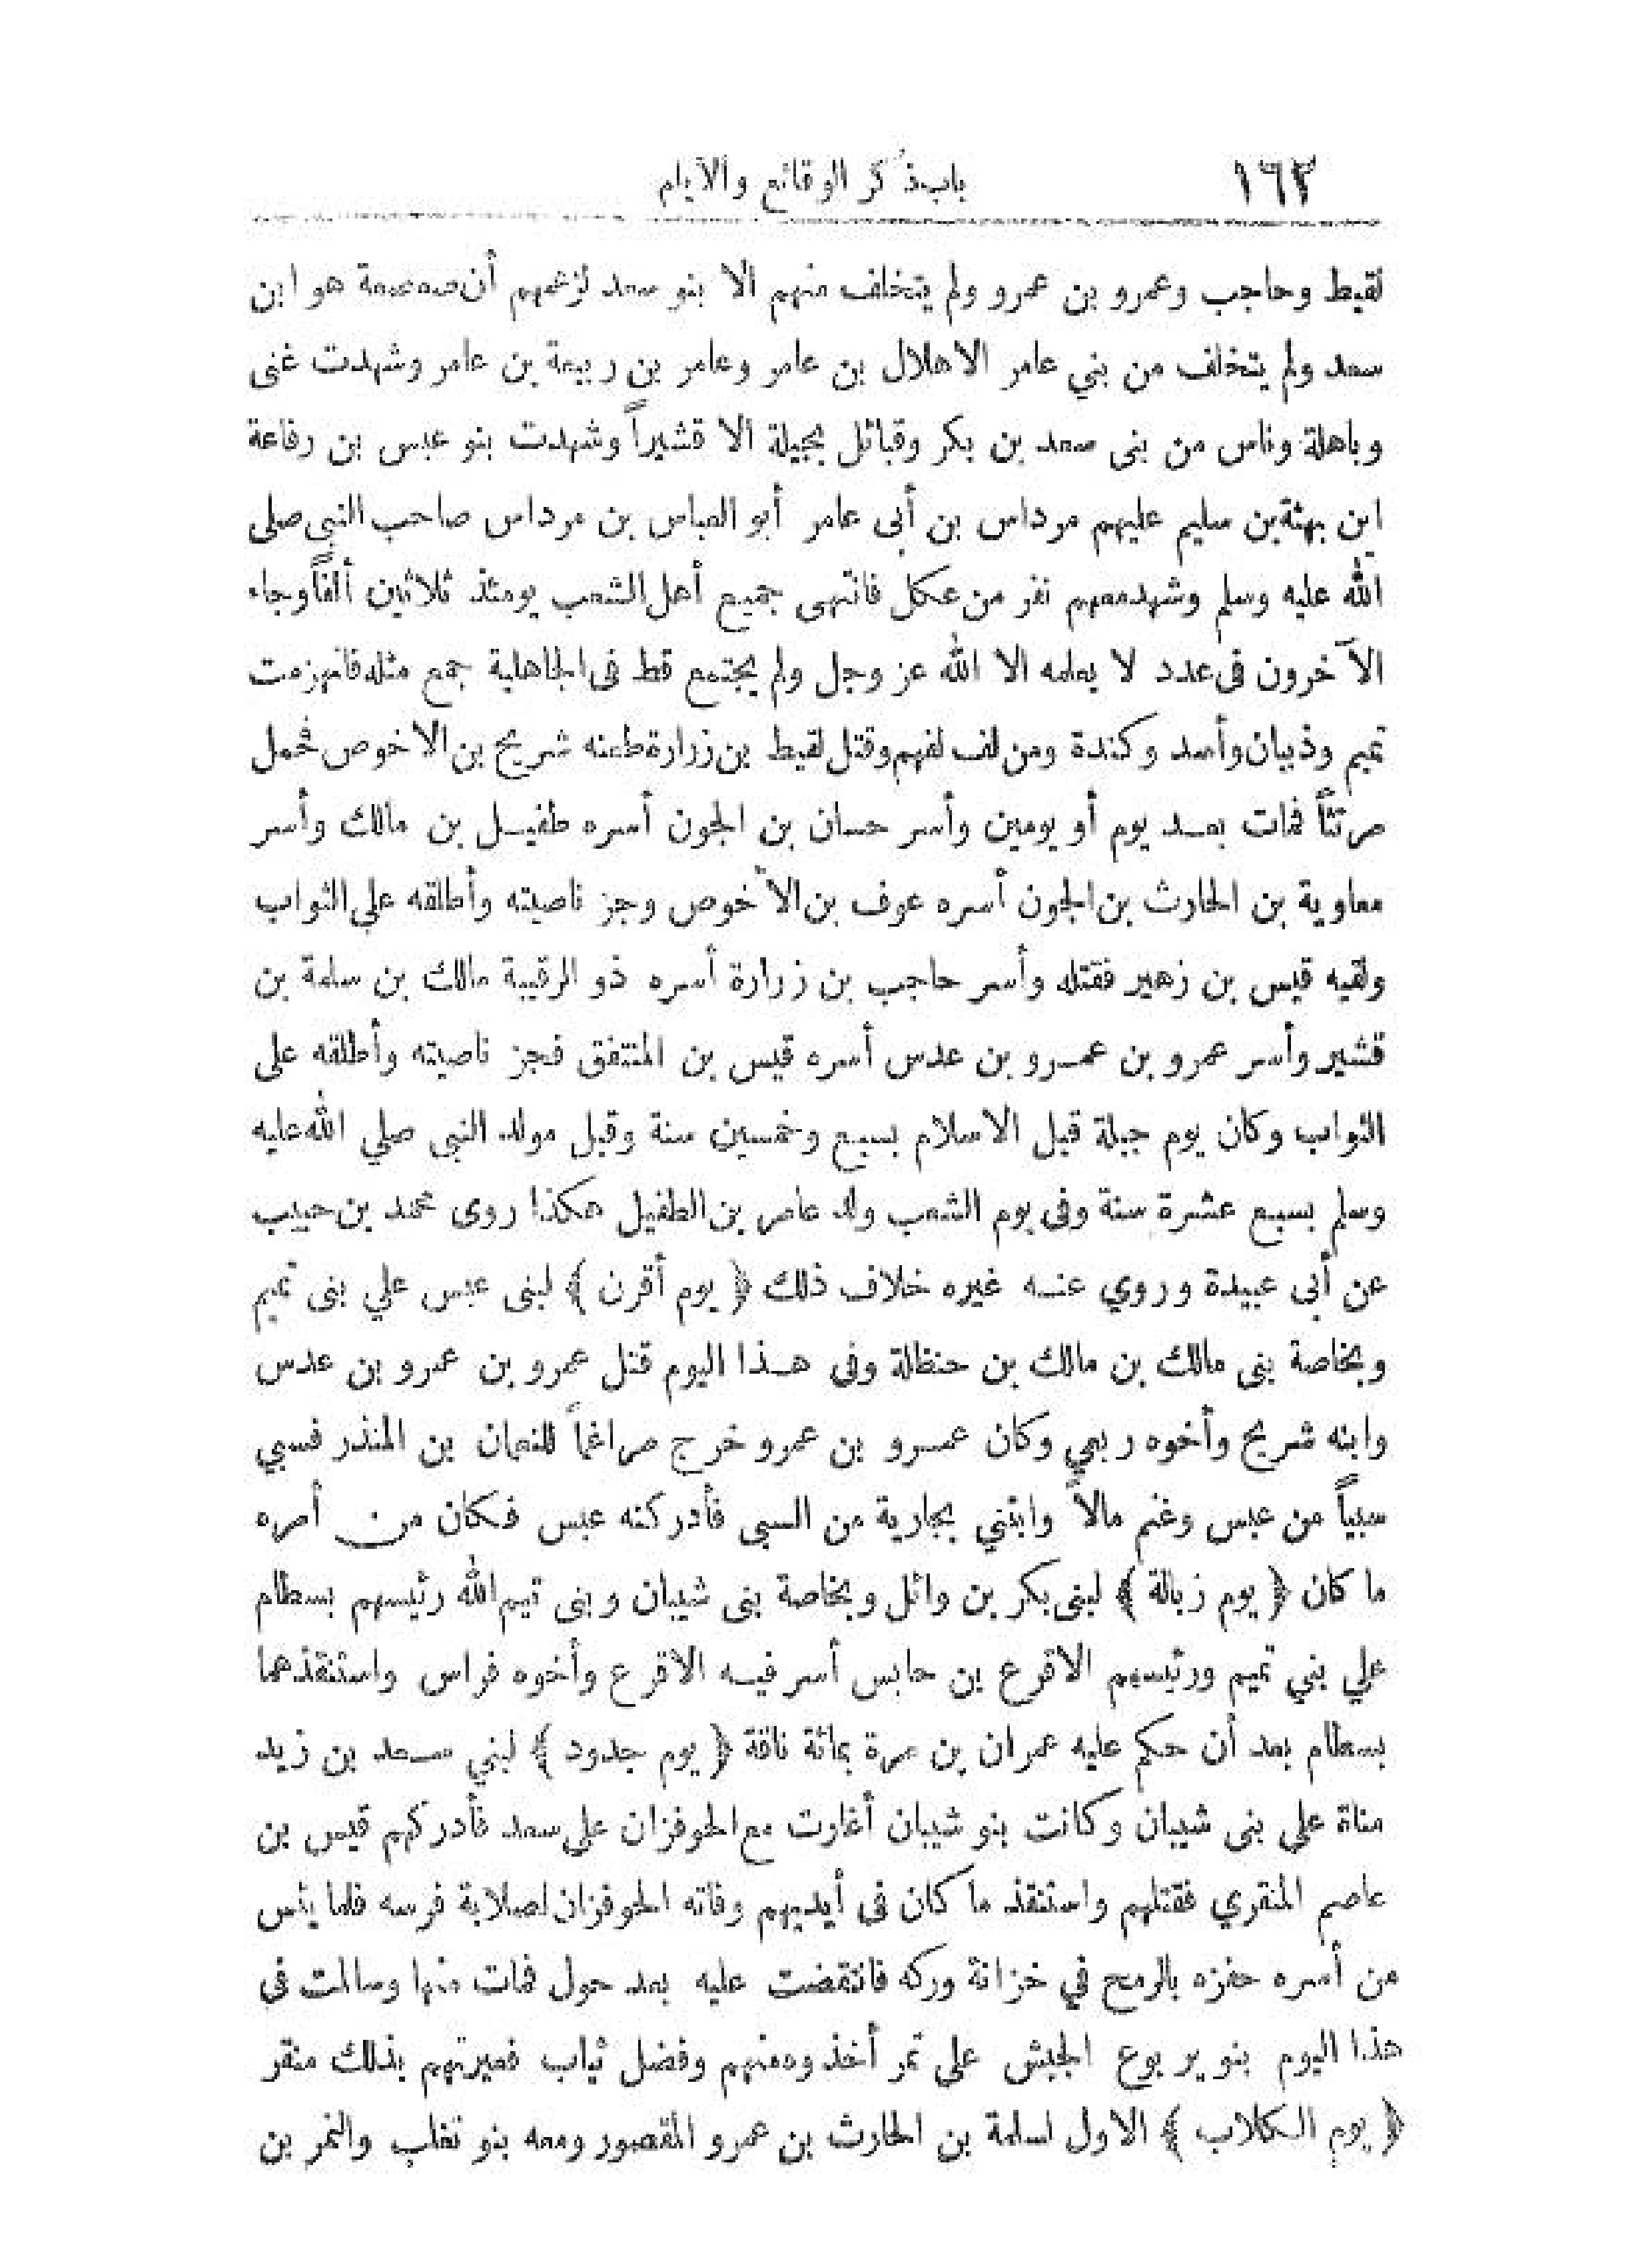 ١٦٢ باب ذكر الوقائع والأيام
لقيط وحاجب وعمرو بن عمرو ولم يتخلف منهم الا بنو سعد لزعمهم أن صعصعة هو ابن
سعد ولم يتخلف من بني عامر الا هلال بن عامر وعامر بن ربيعة بن عامر وشهدت غنى
وباهلة وناس من بنى سعد بن بكر وقبائل بجيلة الا قشيراً وشهدت بنو عبس بن رفاعة
ابن بهثة بن سليم عليهم مرداس بن أبى عامر أبو العباس بن مرداس صاحب النبى صلى
الله عليه وسلم وشهد معهم نفر من عكل فانتهى جميع أهل الشعب يومئذ ثلاثين ألفاً وجاء
الآخرون فى عدد لا يعلمه الا الله عز وجل ولم يجتمع قط فى الجاهلية جمع مثله فانهزمت
تميم وذبيان وأسد وكندة ومن لف لفهم وقتل لقيط بن زرارة طعنه شريح بن الاخوص فحمل
مرتثاً فمات بعد يوم أو يومين وأسر حسان بن الجون أسره طفيل بن مالك وأسر
معاوية بن الحارث بن الجون أسره عوف بن الأخوص وجز ناصيته وأطلقه على الثواب
ولقيه قيس بن زهير فقتله وأسر حاجب بن زرارة أسره ذو الرقيبة مالك بن سلمة بن
قشير وأسر عمرو بن عمرو بن عدس أسره قيس بن المنتفق فجز ناصيته وأطلقه على
الثواب وكان يوم جبلة قبل الاسلام بسبع وخمسين سنة وقبل مولد النبى صلي الله عليه
وسلم بسبع عشرة سنة وفى يوم الشعب ولد عامر بن الطفيل هكذا روى محمد بن حبيب
عن أبى عبيدة وروي عنه غيره خلاف ذلك ﴿ يوم أقرن ﴾ لبنى عبس علي بنى تميم
وبخاصة بنى مالك بن مالك بن حنظلة وفى هذا اليوم قتل عمرو بن عمرو بن عدس
وابنه شريح وأخوه ربعي وكان عمرو بن عمرو خرج مراغماً للنعمان بن المنذر فسبي
سبياً من عبس وغنم مالاً وابتني بجارية من السبى فأدركته عبس فكان من أمره
ما كان ﴿ يوم زبالة ﴾ لبنى بكر بن وائل وبخاصة بنى شيبان وبنى تيم الله رئيسهم بسطام
علي بني تميم ورئيسهم الاقرع بن حابس أسر فيه الاقرع وأخوه فراس واستنقذهما
بسطام بعد أن حكم عليه عمران بن مرة بمائة ناقة ﴿ يوم جدود ﴾ لبني سعد بن زيد
مناة على بنى شيبان وكانت بنو شيبان أغارت مع الحوفزان على سعد فأدركهم قيس بن
عاصم المنقري فقتلهم واستنقذ ما كان فى أيديهم وفاته الحوفزان لصلابة فرسه فلما يئس
من أسره حفزه بالرمح في خزانة وركه فانتقضت عليه بعد حول فمات منها وسالمت فى
هذا اليوم بنو يربوع الجيش على تمر أخذوه منهم وفضل ثياب فعيرتهم بذلك منقر
﴿ يوم الكلاب ﴾ الاول لسلمة بن الحارث بن عمرو المقصور ومعه بنو تغلب والنمر بن